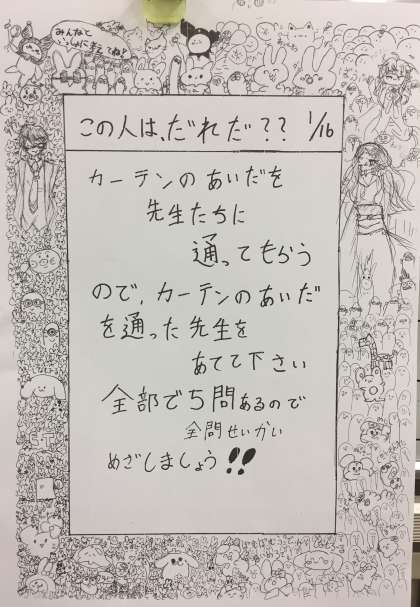 みんなと
いっしょに考えてね♪
この人は、だれだ?? 1/16
カーテンのあいだを
先生たちに
通ってもらう
ので、カーテンのあいだ
を通った先生を
あてて下さい
全部で5問あるので
全問せいかい
めざしましょう!!